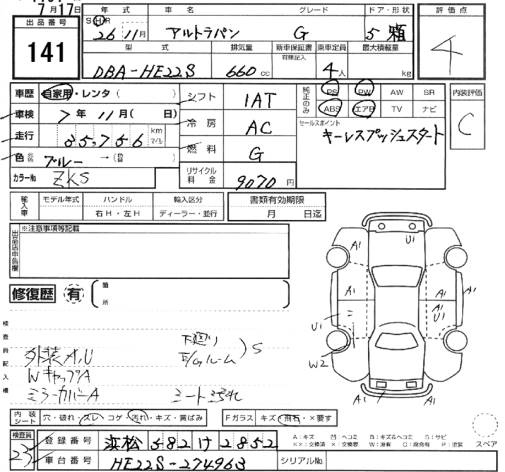 7月17日
出品番号
141
年式 車名 グレード ドア・形状 評価点
S H R 26年11月 アルトラパン G 5 箱 4
型式 排気量 新車保証書 乗車定員 最大積載量
有無記入
DBA-HE22S 660cc 4人 kg
車歴 自家用・レンタ( ) シフト IAT 純正のみ PS PW AW SR 内装評価
車検 7年 11月( 日) 冷房 AC ABS エアB TV ナビ C
走行 85,756 km マイル 燃料 G セールスポイント
キーレスプッシュスタート
色 ブルー →( )
カラーNo ZKS リサイクル料金 9070円
輸入車 モデル年式 ハンドル 輸入区分 書類有効期限
右H・左H ディーラー・並行 月 日迄
※注意事項等記載
修復歴 有 箇所
検査員記入欄
下廻り
外装キズU E/Gルーム S
WキャップA
ミラーカバーA シート汚れ
A1 U1 A1 A1 A1 A1 U1 U1 W2 A1 A1
内装シート 穴・破れ・スレ・コゲ・汚れ・キズ・黄ばみ Fガラス キズ・飛石・×要す
A:キズ U:ヘコミ B:キズ&ヘコミ S:サビ
スペア
検査員 23
登録番号 浜松 582 け 2852
車台番号 HE22S-274963 シリアルNo